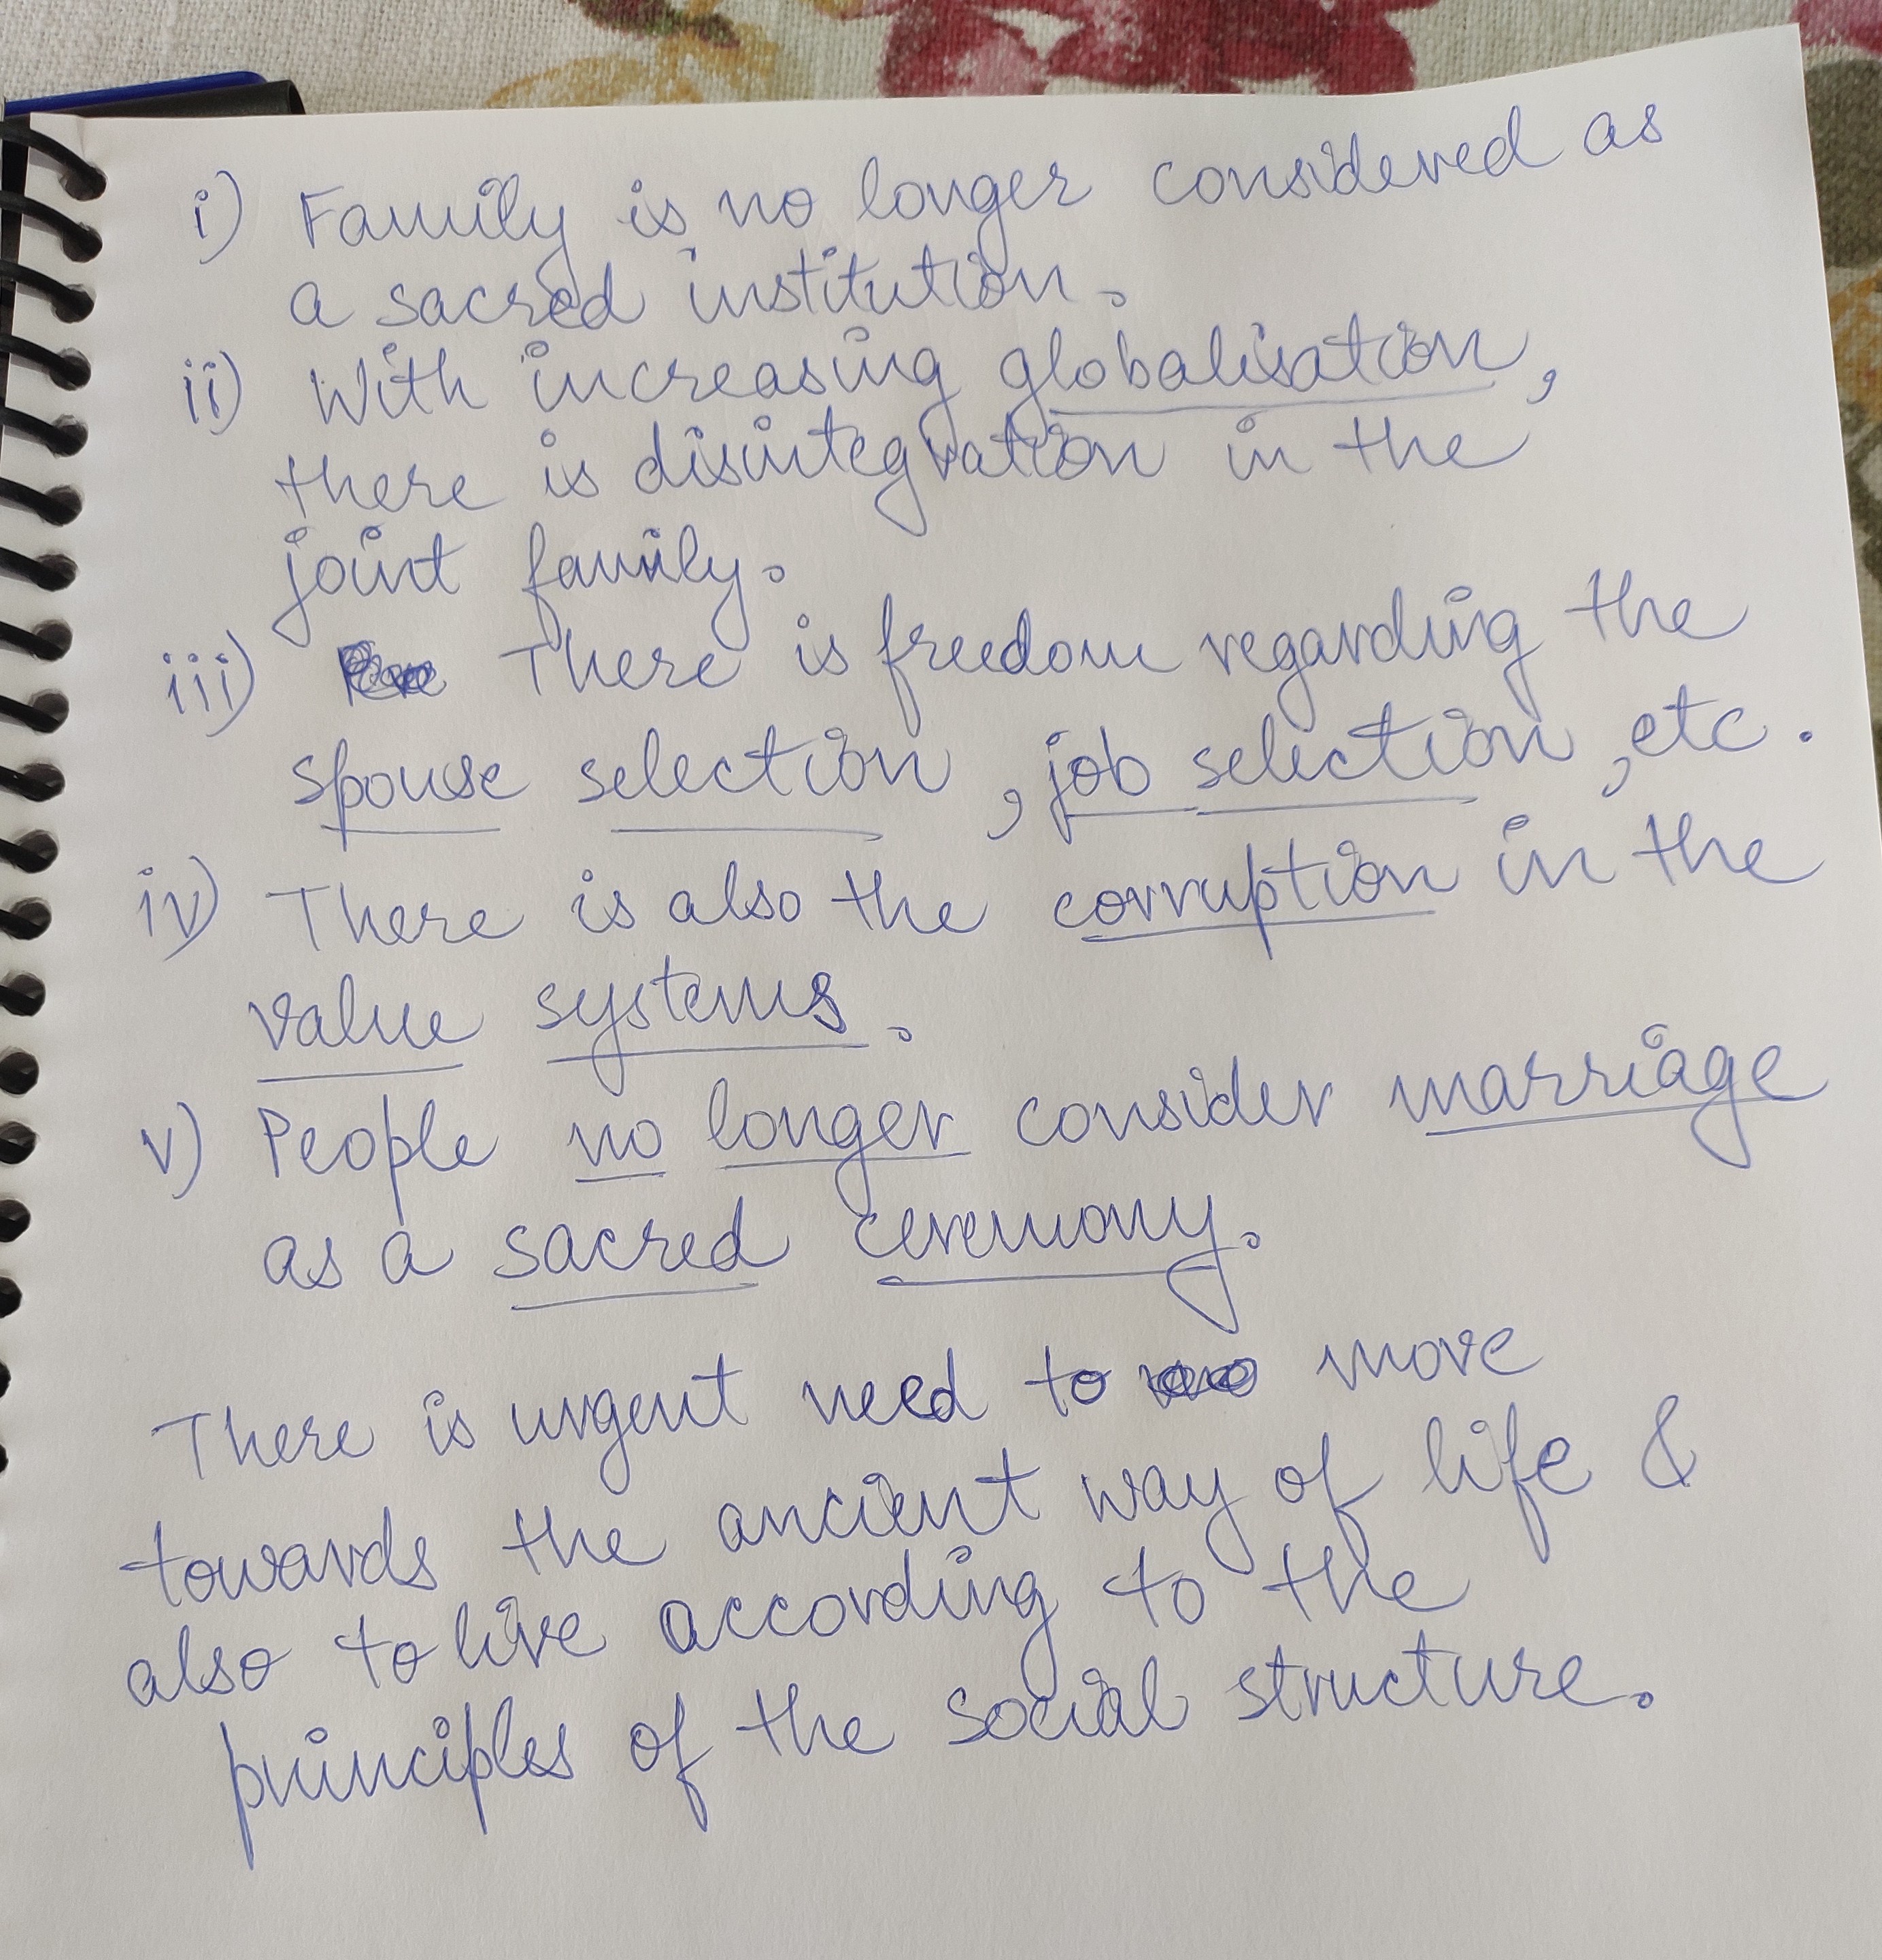 i) Family is no longer considered as
a sacred institution.
ii) With increasing globalisation,
there is disintegration in the
joint family.
iii) There is freedom regarding the
spouse selection, job selection, etc.
iv) There is also the corruption in the
value systems.
v) People no longer consider marriage
as a sacred ceremony.
There is urgent need to move
towards the ancient way of life &
also to live according to the
principles of the social structure.